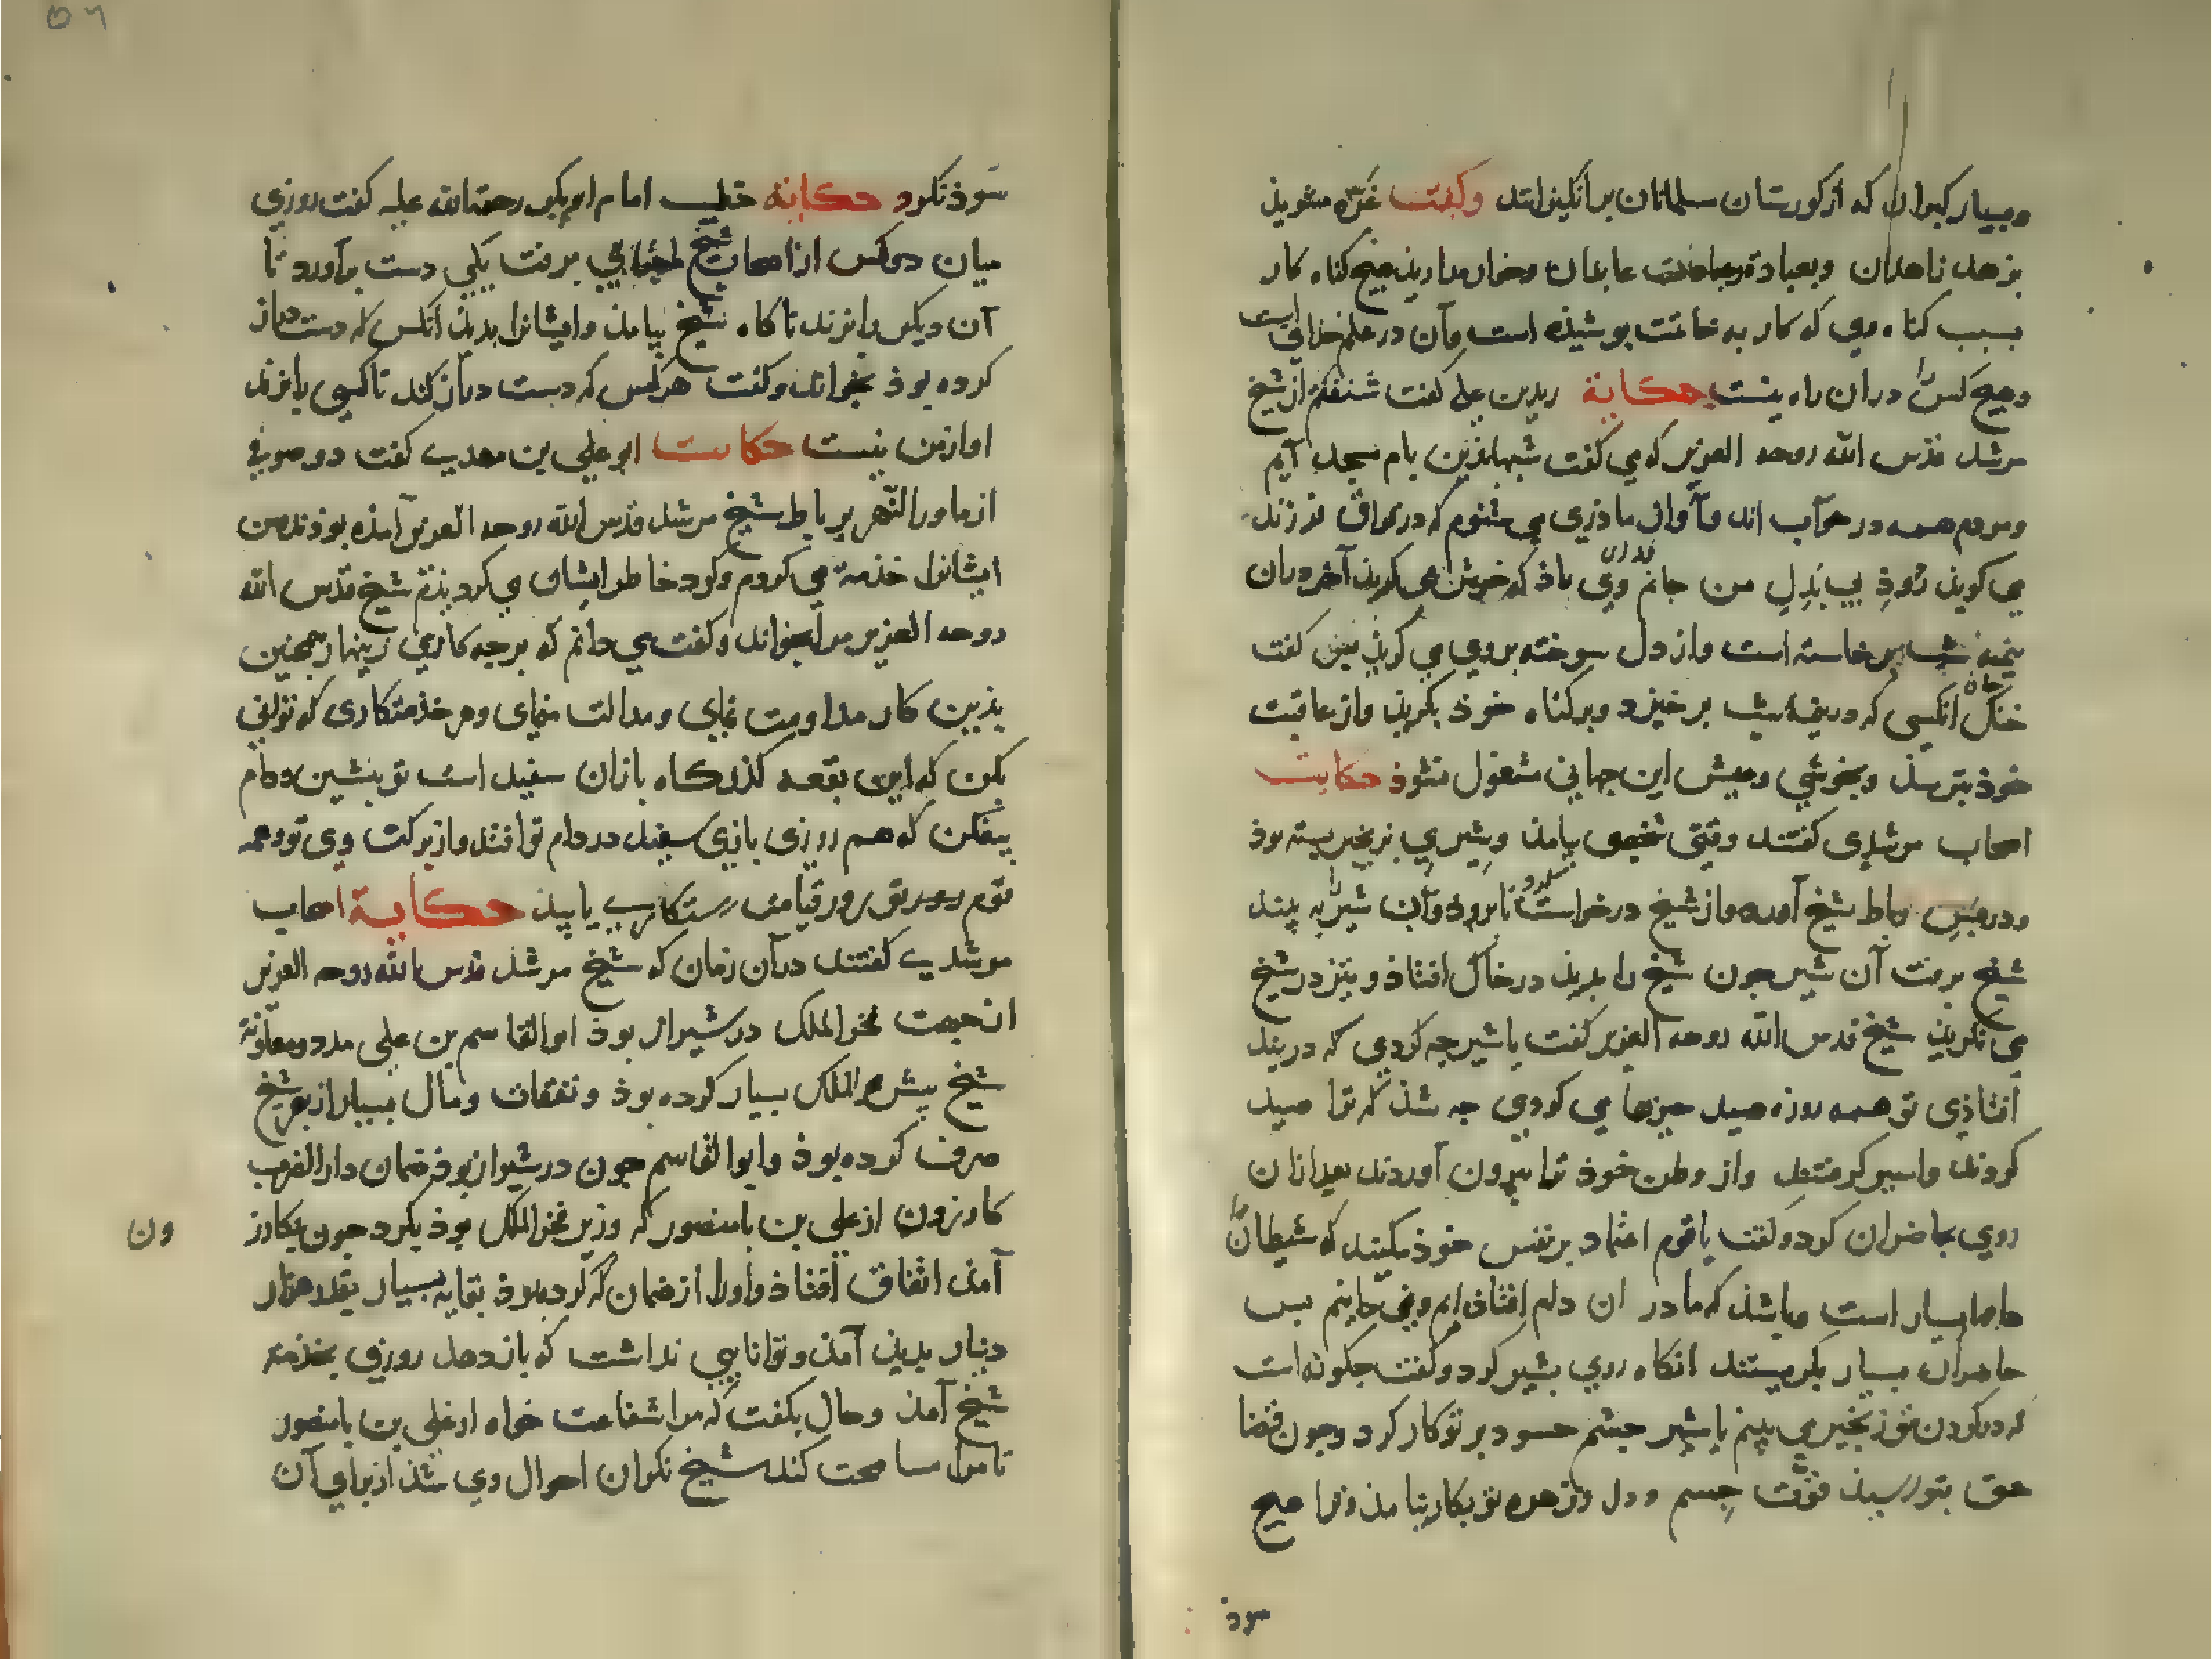 وبسیار کبران که از کورستان مسلمانان برانکیزانند وکفت غرّه مشویذ
بزهد زاهدان وبعبادة عابدان هیچ کناه کار
بسبب کناه وی که کار به خاتمت بوشیذه است وآن در علم خدایی است
وهیچ کس را دران راه نیست حکایة زیدبن علی کفت شنفتم از شیخ
مرشد قدس الله روحه العزیز که می کفت شبها بذین بام مسجد آیم
ومردم همه در خواب اند وآواز ماذری می شنوم که در فراق فرزند
می کویذ رُوذِ بی بَدِلِ من جانم فدای وی باذ که خویشتن می کویذ آخر دران
نیمه شب برخاسته است واز دل سوخته بروی می کویذ بس کفت
خنک انکسی که در نیمه شب برخیزد وبر کناه خوذ بکریذ واز عاقبت
خوذ بترسذ وبخوشی وعیش این جهانی مشغول نشوذ حکایت
اصحاب مرشدی کفتند وقتی شخصی بیامذ وشیری بزنجیر بسته بوذ
ودر بیش رباط شیخ آورده واز شیخ درخواست کرد تا بروذ وآن شیر را به بیند
شیخ برفت آن شیر جون شیخ را بدیذ در خاک افتاذ وتیز در شیخ
می نکریذ شیخ قدس الله روحه العزیز کفت یا شیر جه کردی که در بند
افتاذی تو همه روزه صید جیزها می کردی جه شذ که ترا صید
کردند واسیر کرفتند واز وطن خوذ ترا بیرون آوردند بعد ازان
روی بحاضران کرد وکفت یا قوم اعتماد بر نفس خوذ مکنید که شیطان را
دامها بسیار است وباشذ که ما در ان دام افتاذه ایم ونمی دانیم بس
حاضران بسیار بکریستند انکاه روی بشیر کرد وکفت جکونه است
که در کردن تو زنجیر می بینم یا شیر جشم حسود بر تو کار کرد وجون قضا
حق بتو رسیذ قوّت جسم ودل وزهره تو بکار نیامذ وترا هیچ
سوذ
سوذ نکرد حکایة خطیب امام ابوبکر رحمة الله علیه کفت روزی
میان دو کس از اصحاب شیخ برفت یکی دست برآورد تا
آن دیکر را بزند ناکاه شیخ بیامذ وایشانرا بدیذ انکس که دست دراز
کرده بوذ بخواند وکفت هرکس که دست دراز کند تا کسی را بزند
او از من نیست حکایت ابوعلی بن مهدی کفت دو صوفی
از ماورالنّهر برباط شیخ مرشد قدس الله روحه العزیز آمذه بوذند من
ایشانرا خذمة می کردم وکرد خاطر ایشان می کردیذم شیخ قدس الله
روحه العزیز مرا بخواند وکفت می دانم که برجه کاری زینهار همجنین
بذین کار مداومت نمای ومدالت منمای وهر خذمتکاری که توانی
بکن که این بقعه کذرکاه بازان سفید است تو بنشین ودام
بیفکن که هم روزی بازی سفید در دام تو افتد واز برکت وی تو وهمه
قوم روز قیامت رستکاری یابید حکایة اصحاب
مرشدی کفتند دران زمان که شیخ مرشد قدس الله روحه العزیز
از جهت فخرالملک در شیراز بوذ ابوالقاسم بن علی مدد ومعاونة
شیخ بیش فخرالملک بسیار کرده بوذ ونفقات ومال بسیار از بهر شیخ
صرف کرده بوذ وابوالقاسم جون در شیراز بوذ ضمان دارالضرب
کازرون از علی بن بامنصور که وزیر فخرالملک بوذ بکرد جون بکازرون
آمذ اتفاق افتاذ واورا از ضمان که کرده بوذ بقایه بسیار بقدر هزار
دینار بدیذ آمذ وتوانایی نداشت که باز دهد روزی بخذمة
شیخ آمذ وحال بکفت که مرا شفاعت خواه از علی بن بامنصور
تا مرا مسامحت کند شیخ نکران احوال وی شذ از برای آن